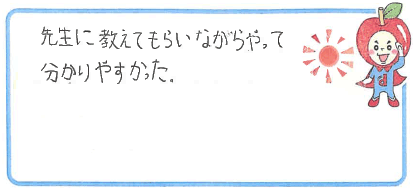 先生に教えてもらいながらやって
分かりやすかった。